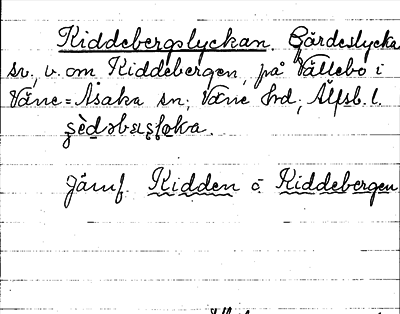 Kiddebergslyckan. Gärdeslycka
sv., v. om Kiddebergen, på Vällebo i
Väne-Åsaka sn, Väne hd, Älfsb. l.
Jämf. Kidden o. Kiddebergen